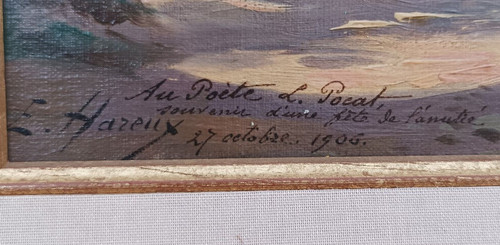 Au Poète L. Pocat
souvenir d'une fête de l'amitié
E. Hareux
27 octobre. 1906.